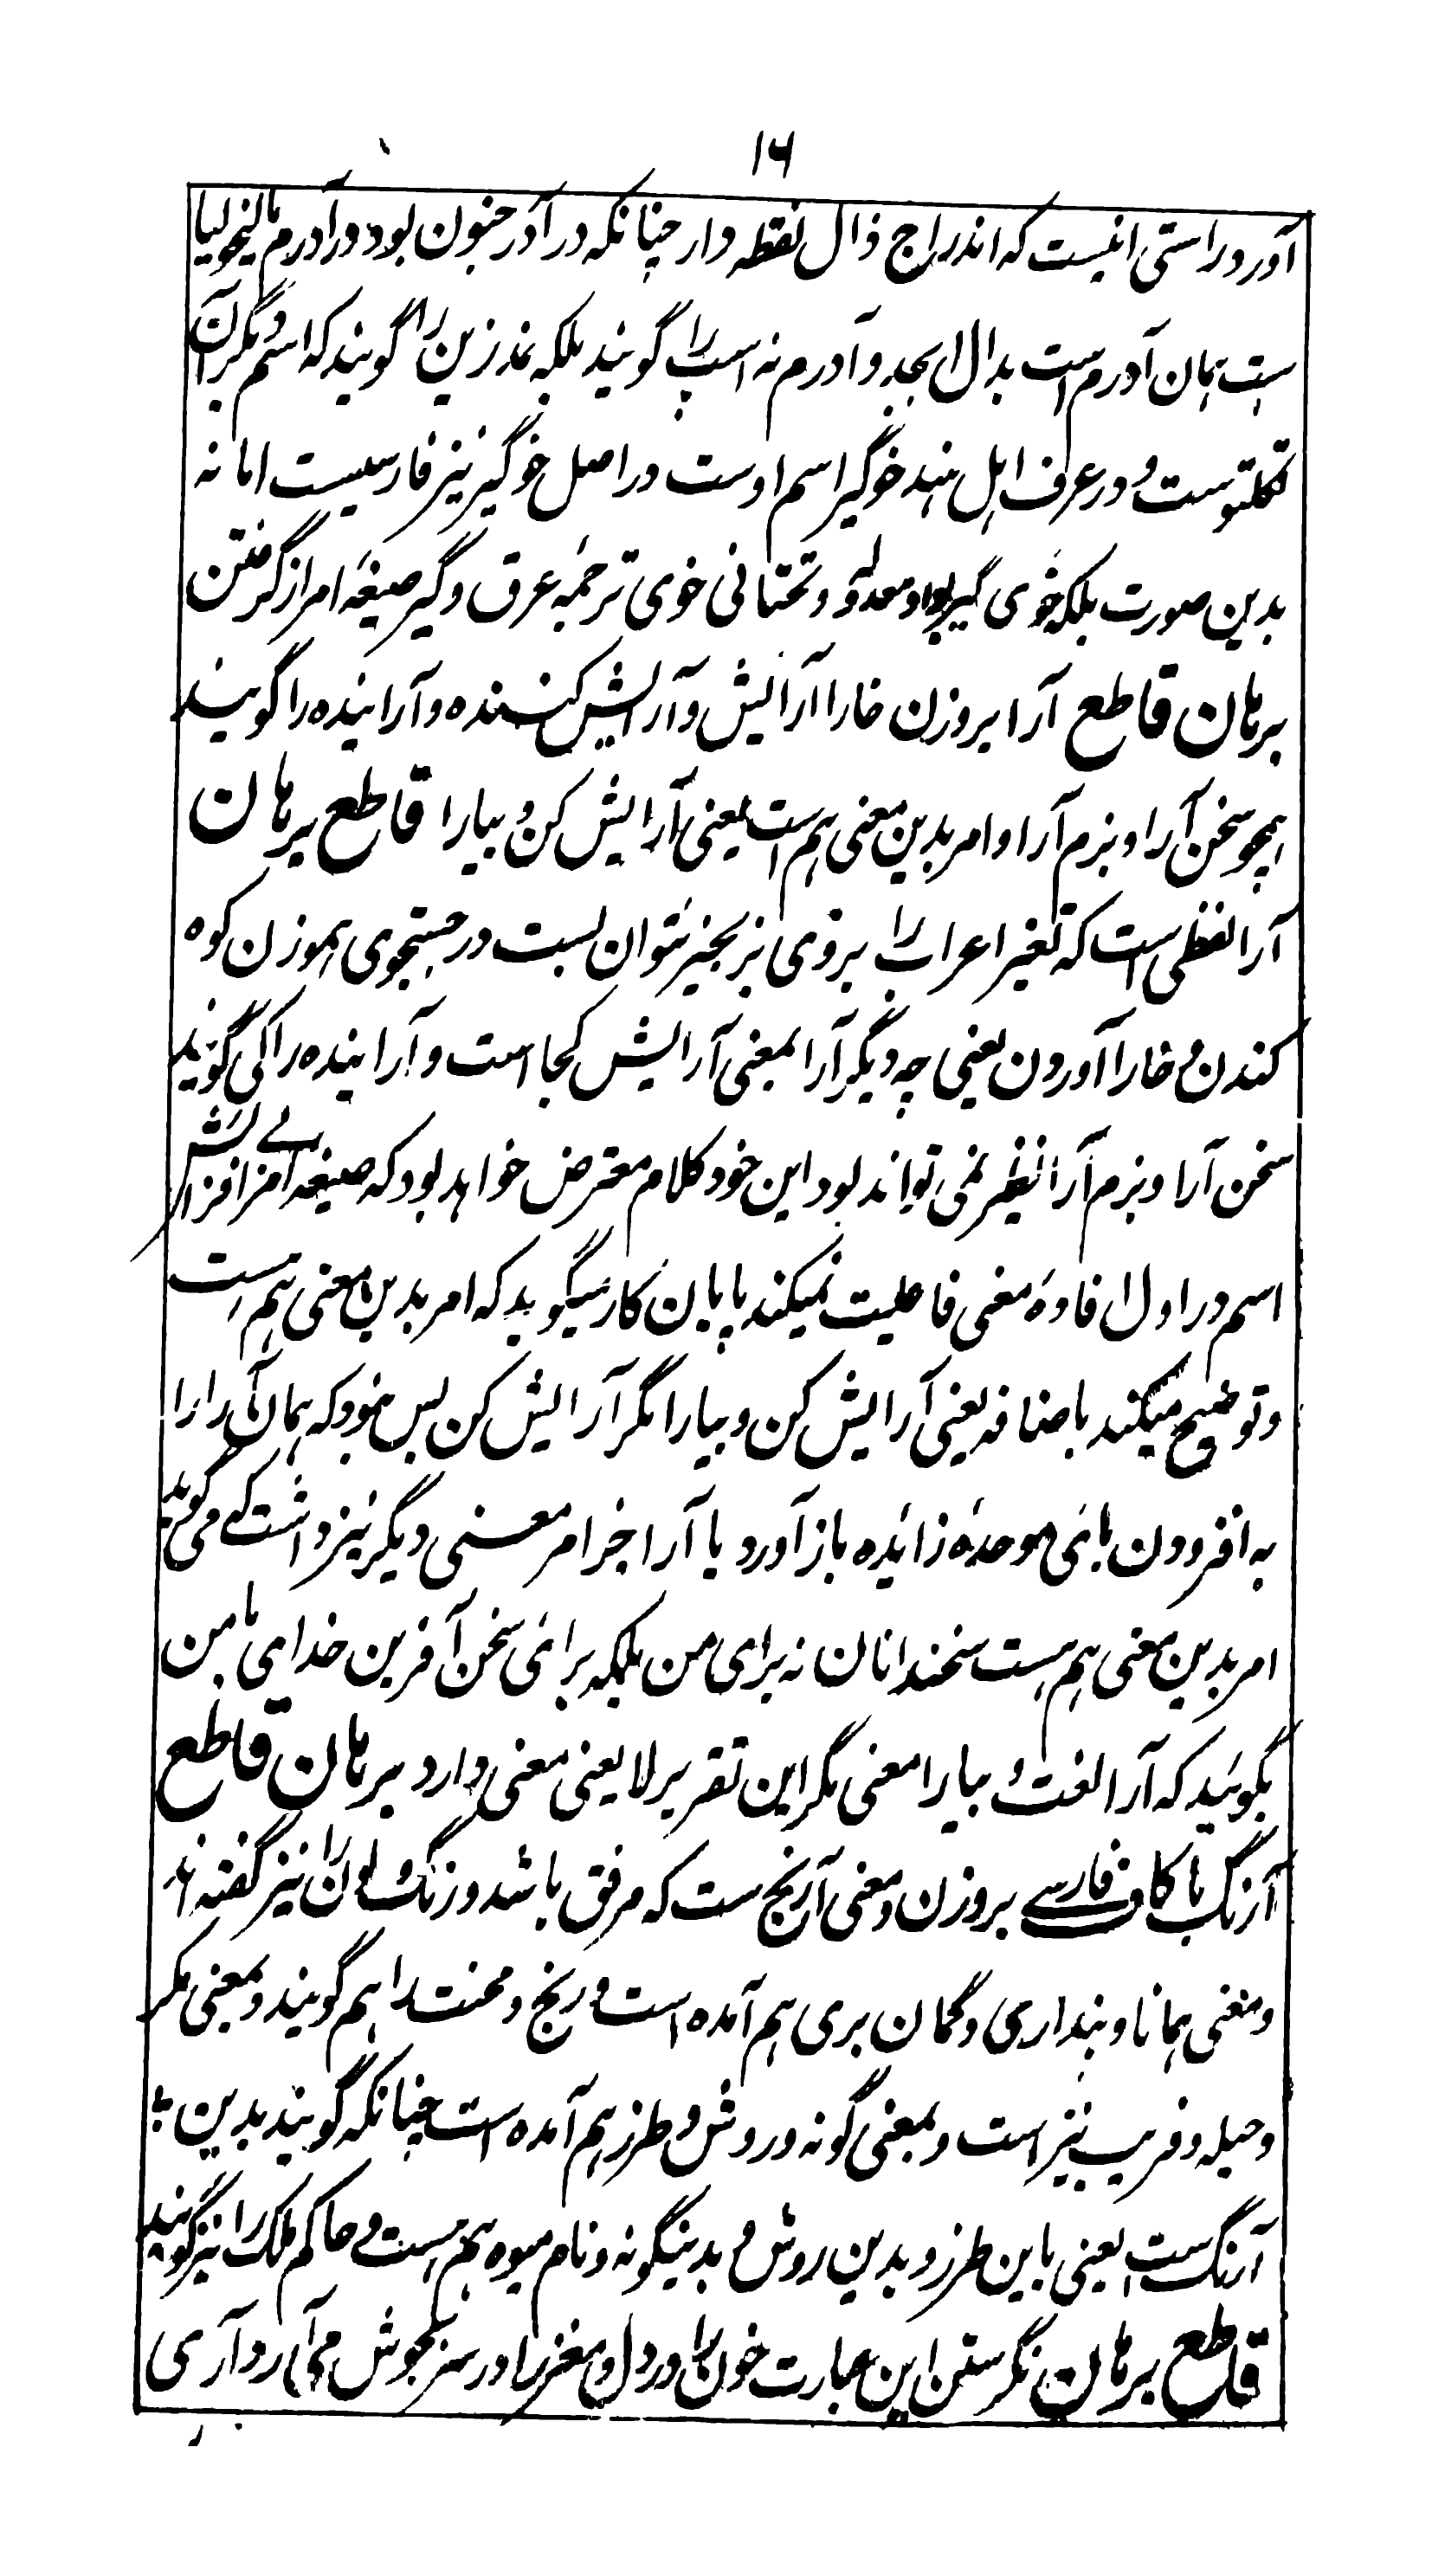 ۱۶
آورد و راستی اینست که اندراج ذال نقطه دار چنانکه در آذر جنون بود در آذرم مالیخولیا
ست همان آدرم است بدال ابجد و آدرم نه اسپ را گویند بلکه نمد زین را گویند که اسم دیگر آن
تکلتوست و در عرف اهل هند خوگیر اسم اوست در اصل خوگیر نیز فارسیست اما نه
بدین صورت بلکه خوی گیر بواو معدوله و تحتانی خوی ترجمهٔ عرق و گیر صیغهٔ امر از گرفتن
برهان قاطع آرا بروزن خارا آرایش و آرایش کننده و آراینده را گویند
همچو سخن آرا و بزم آرا و امر بدین معنی هم است یعنی آرایش کن و بیارا قاطع برهان
آرا لفظی است که تغیر اعراب را بروی بزنجیر نتوان بست در جستجوی هموزن کوه
کندن و خارا آوردن یعنی چه دیگر آرا بمعنی آرایش کجا است و آراینده را کی گویند
سخن آرا و بزم آرا نظیر نمی تواند بود این خود کلام معترض خواهد بود که صیغهٔ امر بے افزایش
اسم در اول افادهٔ معنی فاعلیت نمیکند پایان کار میگوید که امر بدین معنی هم است
و توضیح میکند باضافه یعنی آرایش کن و بیارا مگر آرایش کن بس نبود که همان آرا را
به افزودن بای موحدهٔ زائیده باز آورد یا آرا جز امر معنی دیگر نیز داشت که می گوید
امر بدین معنی هم هست سخندانان نه برای من بلکه برای سخن آفرین خدای با من
بگوئید که آرا لغت و بیارا معنی مگر این تقریر لا یعنی معنی دارد برهان قاطع
آرنگ با کاف فارسے بروزن و معنی آرنج ست که مرفق باشد و رنگ و لون را نیز گفته اند
و معنی همانا و پنداری و گمان بری هم آمده است و رنج و محنت را هم گویند و بمعنی مکر
و حیله و فریب نیز است و بمعنی گونه و روش و طرز هم آمده است چنانکه گویند بدین
آرنگ ست یعنی باین طرز و بدین روش و بدینگونه و نام میوه هم هست و حاکم ملک را نیز گویند
قاطع برهان نگرستن این عبارت خون را در دل و مغز را در سر بجوش می آرد آری